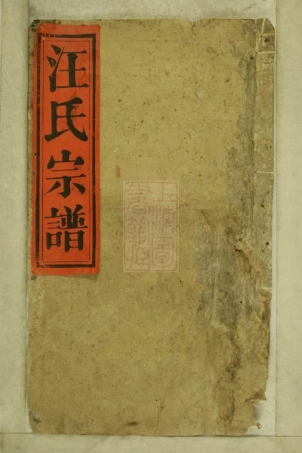 汪氏宗譜